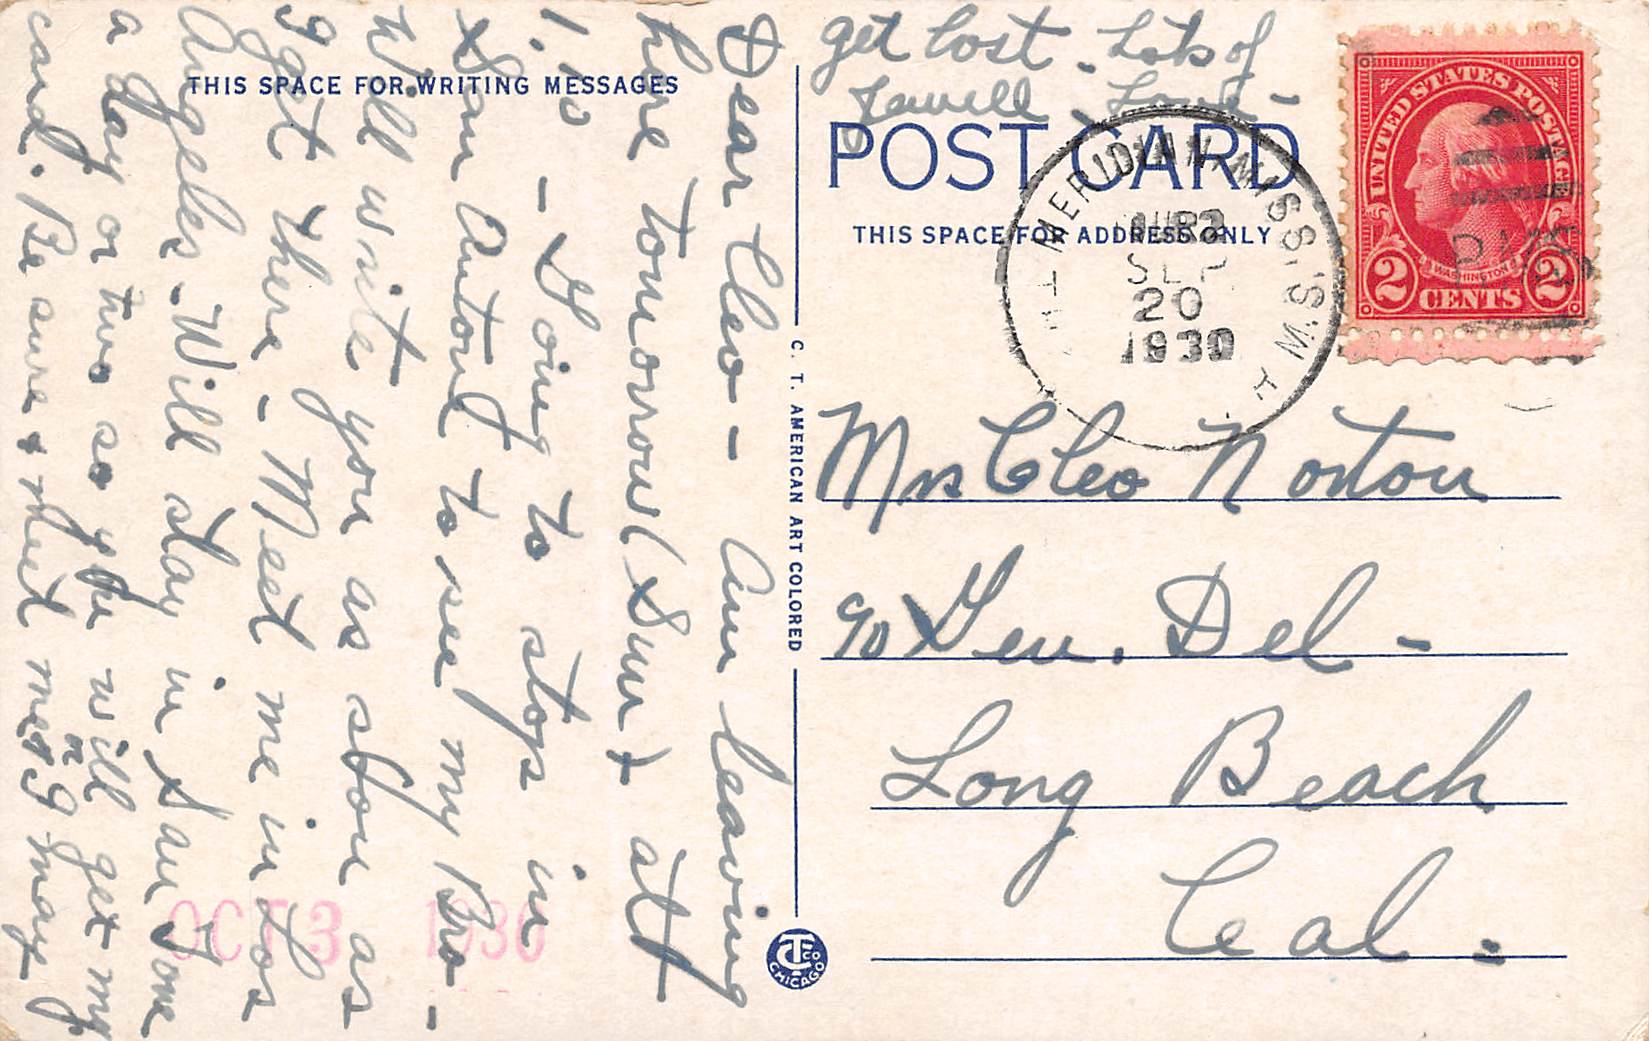 THIS SPACE FOR WRITING MESSAGES
Dear Cleo - Am leaving
here tomorrow (Sun) at
1.10 - Going to stop in
San Anton to see my Bro -
Will write you as soon as
I get there - Meet me in Los
Angeles - Will stay in San Tone
a day or two so you will get my
card. Be sure & meet me or I may
get lost - Lots of
Love -
Lowell
C. T. AMERICAN ART COLORED
CTCO
CHICAGO
POST CARD
THIS SPACE FOR ADDRESS ONLY
MERIDIAN, MISS.
SEP
20
1930
UNITED STATES POSTAGE
WASHINGTON
2 CENTS 2
Mrs Cleo Norton
c/o Gen. Del -
Long Beach
Cal.
OCT 3 1930